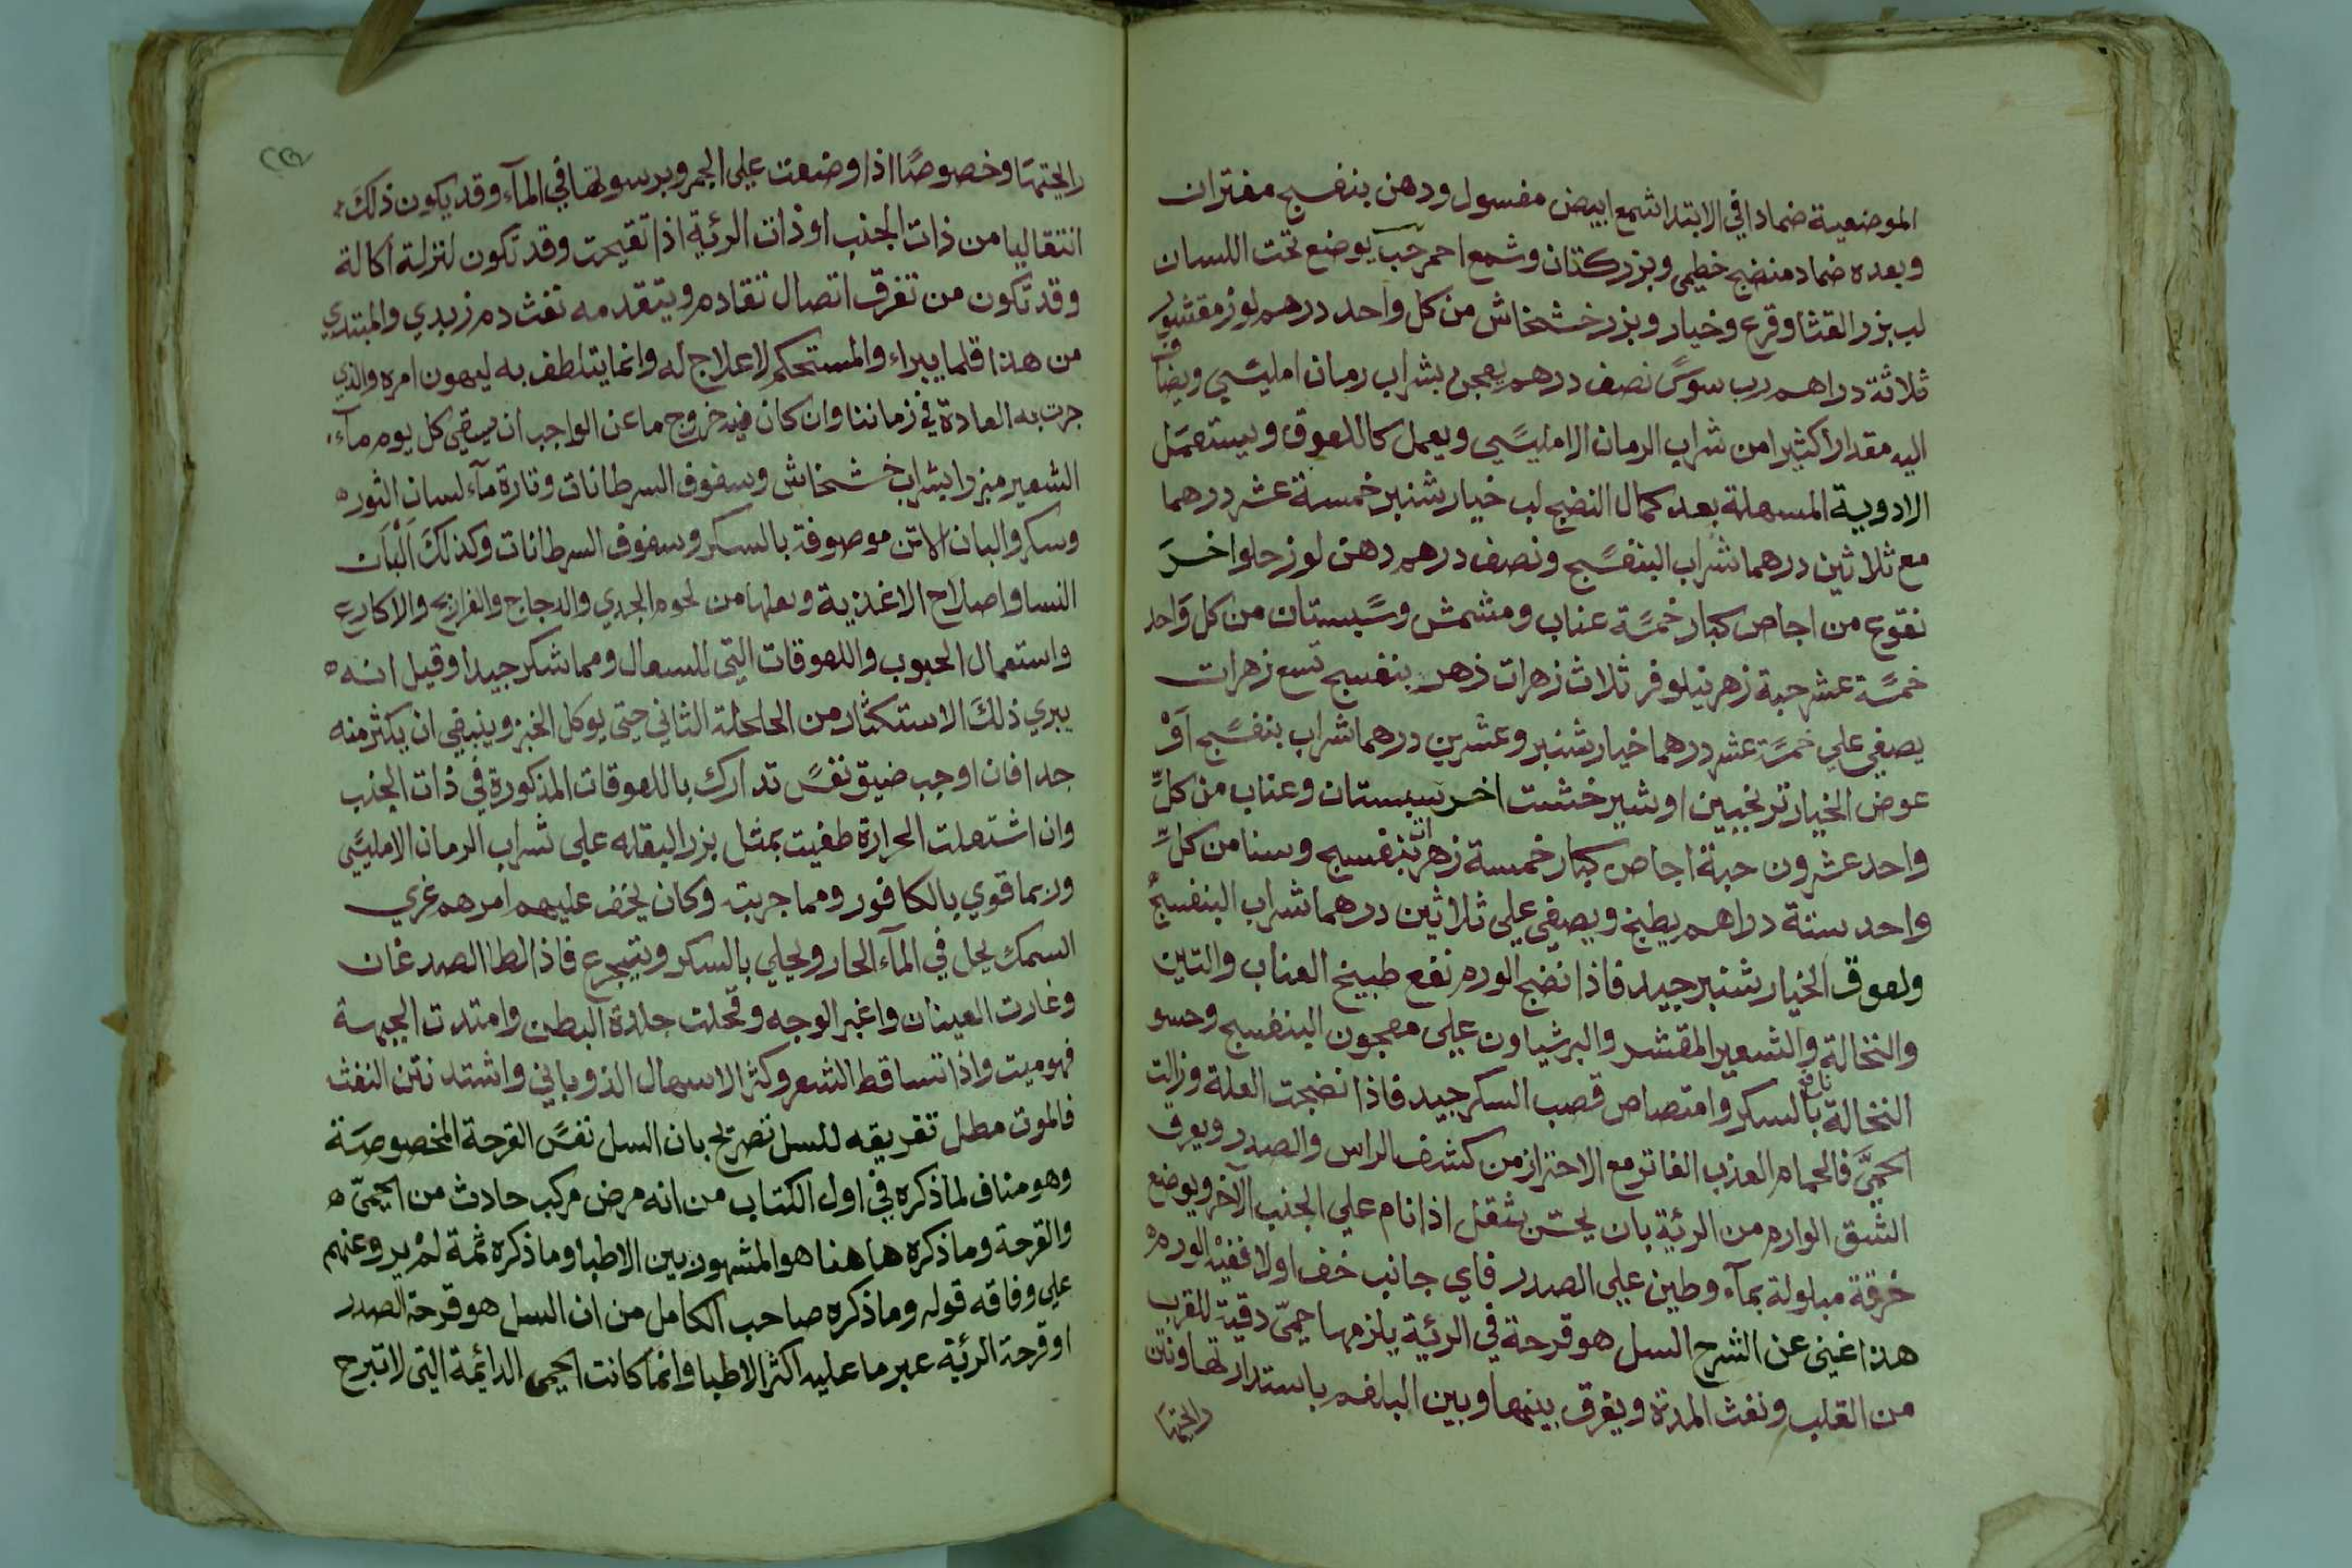 الموضعية ضمادا في الابتدا شمع ابيض مغسول ودهن بنفسج مفتران
وبعده ضماد منضج خطمي وبزر كتان وشمع احمر حب يوضع تحت اللسان
لب بزر القثا وقرع وخيار وبزر خشخاش من كل واحد درهم لوز مقشور
ثلاثة دراهم رب سوس نصف درهم يعجن بشراب رمان امليسي ويضاف
اليه مقدارا كثيرا من شراب الرمان الامليسي ويعمل كاللعوق ويستعمل
الادوية المسهلة بعد كمال النضج لب خيار شنبر خمسة عشر درهما
مع ثلاثين درهما شراب البنفسج ونصف درهم دهن لوز حلو اخر
نقوع من اجاص كبار خمسة عناب ومشمش وسبستان من كل واحد
خمسة عشر حبة زهر نيلوفر ثلاث زهرات زهر بنفسج تسع زهرات
يصفي علي خمسة عشر درهما خيار شنبر وعشرين درهما شراب بنفسج او
عوض الخيار ترنجبين او شير خشت اخر سبستان وعناب من كل
واحد عشرون حبة اجاص كبار خمسة زهرات بنفسج وسنا من كل
واحد ستة دراهم يطبخ ويصفي علي ثلاثين درهما شراب البنفسج
ولعوق الخيار شنبر جيد فاذا نضج الورم نفع طبيخ العناب والتين
والنخالة والشعير المقشر والبرشياون علي معجون البنفسج وحسو
النخالة بالسكر وامتصاص قصب السكر جيد فاذا نضجت العلة وزالت
الحمي فالحمام العذب الفاتر مع الاحتراز من كشف الراس والصدر ويعرف
الشق الوارم من الرئية بان يحس بثقل اذا نام علي الجنب الآخر ويوضع
خرقة مبلولة بمآء وطين علي الصدر فاي جانب خف اولا ففيه الورم
هذا غني عن الشرح السل هو قرحة في الرئية يلزمها حمي دقية للقرب
من القلب ونفث المدة ويفرق بينها وبين البلغم باستدارتها ونتن
رايحتها
رايحتها وخصوصا اذا وضعت علي الجمر وبرسوبها في المآء وقد يكون ذلك
انتقاليا من ذات الجنب او ذات الرئية اذا تقيحت وقد تكون لنزلة اكالة
وقد تكون من تفرق اتصال تقادم ويتقدمه نفث دم زبدي والمبتدي
من هذا قلما يبراء والمستحكم لا علاج له وانما يتلطف به ليهون امره والذي
جرت به العادة في زماننا وان كان فيه خروج ما عن الواجب ان يسقي كل يوم مآء
الشعير مبزرا بشراب خشخاش وسفوف السرطانات وتارة مآء لسان الثور
وسكر والبان الاتن موصوفة بالسكر وسفوف السرطانات وكذلك البان
النسا واصلاح الاغذية وجعلها من لحوم الجدي والدجاج والفراريج والاكارع
واستعمال الحبوب واللعوقات التي للسعال ومما شكر جيدا وقيل انه
يبري ذلك الاستكثار من الجلجلة الثاني حتي يوكل الخبز وينبغي ان يكثر منه
جدا فان اوجب ضيق نفس تدارك باللعوقات المذكورة في ذات الجنب
وان اشتعلت الحرارة طفيت بمثل بزر البقله علي شراب الرمان الامليسي
وربما قوي بالكافور ومما جربته وكان يخف عليهم امرهم غري
السمك يحل في المآء الحار ويحلي بالسكر ويتجرع فاذا لطا الصدغان
وغارت العينان واغبر الوجه وقحلت جلدة البطن وامتدت الجبهة
فهو ميت واذا تساقط الشعر وكثر الاسهال الذوباني واشتد نتن النفث
فالموت مطل تفريقه للسل تصريح بان السل نفس القرحة المخصوصة
وهو مناف لما ذكره في اول الكتاب من انه مرض مركب حادث من الحمي
والقرحة وما ذكره هاهنا هو المشهور بين الاطبا وما ذكره ثمة لم يرو عنهم
علي وفاقه قوله وما ذكره صاحب الكامل من ان السل هو قرحة الصدر
او قرحة الرئية غير ما عليه اكثر الاطبا وانما كانت الحمي الدائمة التي لا تبرح